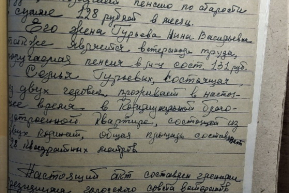 пенсию по старости
сумме 128 рублей в месяц.
Его жена Гурьева Нина Васильевна
также является ветераном труда,
пенсия в м-ц сост. 132 руб.
Семья Гурьевых, состоящая
из двух человек, проживает в настоя-
щее время в благо-
устроенной квартире, состоящей из
двух комнат, общая площадь составляет
28 квадратных метров.
Настоящий акт составлен членами
городского совета ветеранов